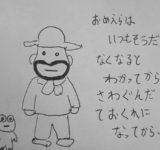 おめえらは
いつもそうだ
なくなると
わかってから
さわぐんだ
ておくれに
なってから